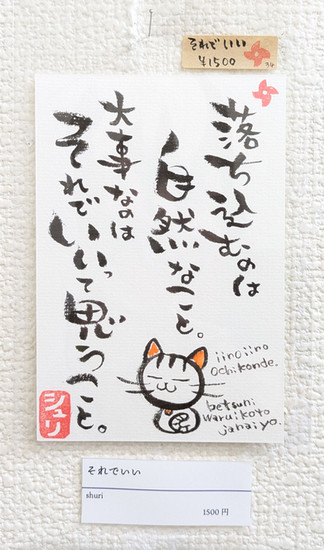 それでいい
¥1500
落ち込むのは
自然なこと。
大事なのは
それでいいって思うこと。
iiroiiro
Ochikonde.
betsuni
waruikoto
janaiyo.
シュリ
それでいい
shuri
1500円